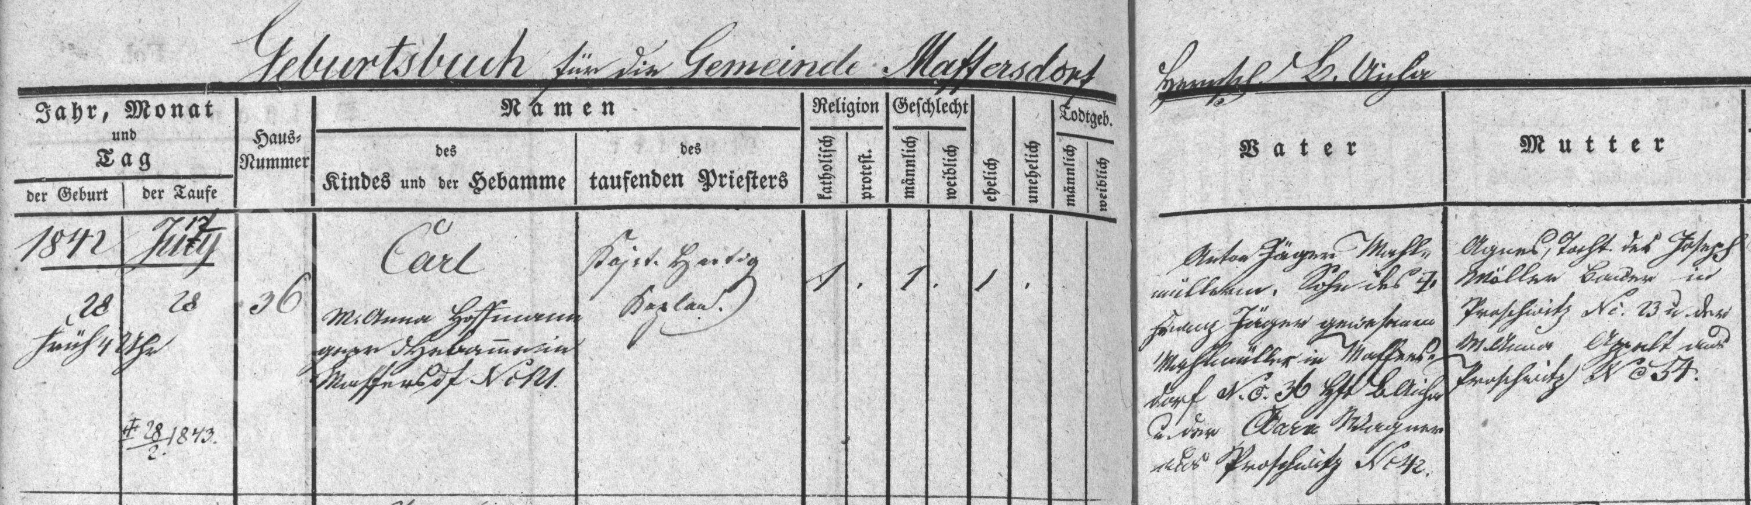 Geburtsbuch für die Gemeinde Maffersdorf
Herrschaft B. Aicha
Jahr, Monat
und
Tag
der Geburt der Taufe
Haus-
Nummer
Namen
des
Kindes und der Hebamme
des
taufenden Priesters
Religion
katholisch
protest.
Geschlecht
männlich
weiblich
ehelich
unehelich
Todtgeb.
männlich
weiblich
Vater
Mutter
1842 July
17
28 28
früh 4 Uhr
28/2 1843.
36
Carl
M. Anna Hoffmann
gepr Hebamme in
Maffersdf No 121.
Hertig
Kaplan.
1 . 1 . 1 .
Anton Jäger Mahl-
müller. Sohn des
Franz Jäger gewesenen
Mahlmüller in Maffers-
dorf N. C. 36 Hft B. Aicha
u. der Wagner
aus Proschwitz No 42.
Agnes, Tocht. des Joseph
Möller Bauer in
Proschwitz Nc. 23 u der
M. Anna Appelt aus
Proschwitz Nc 54.